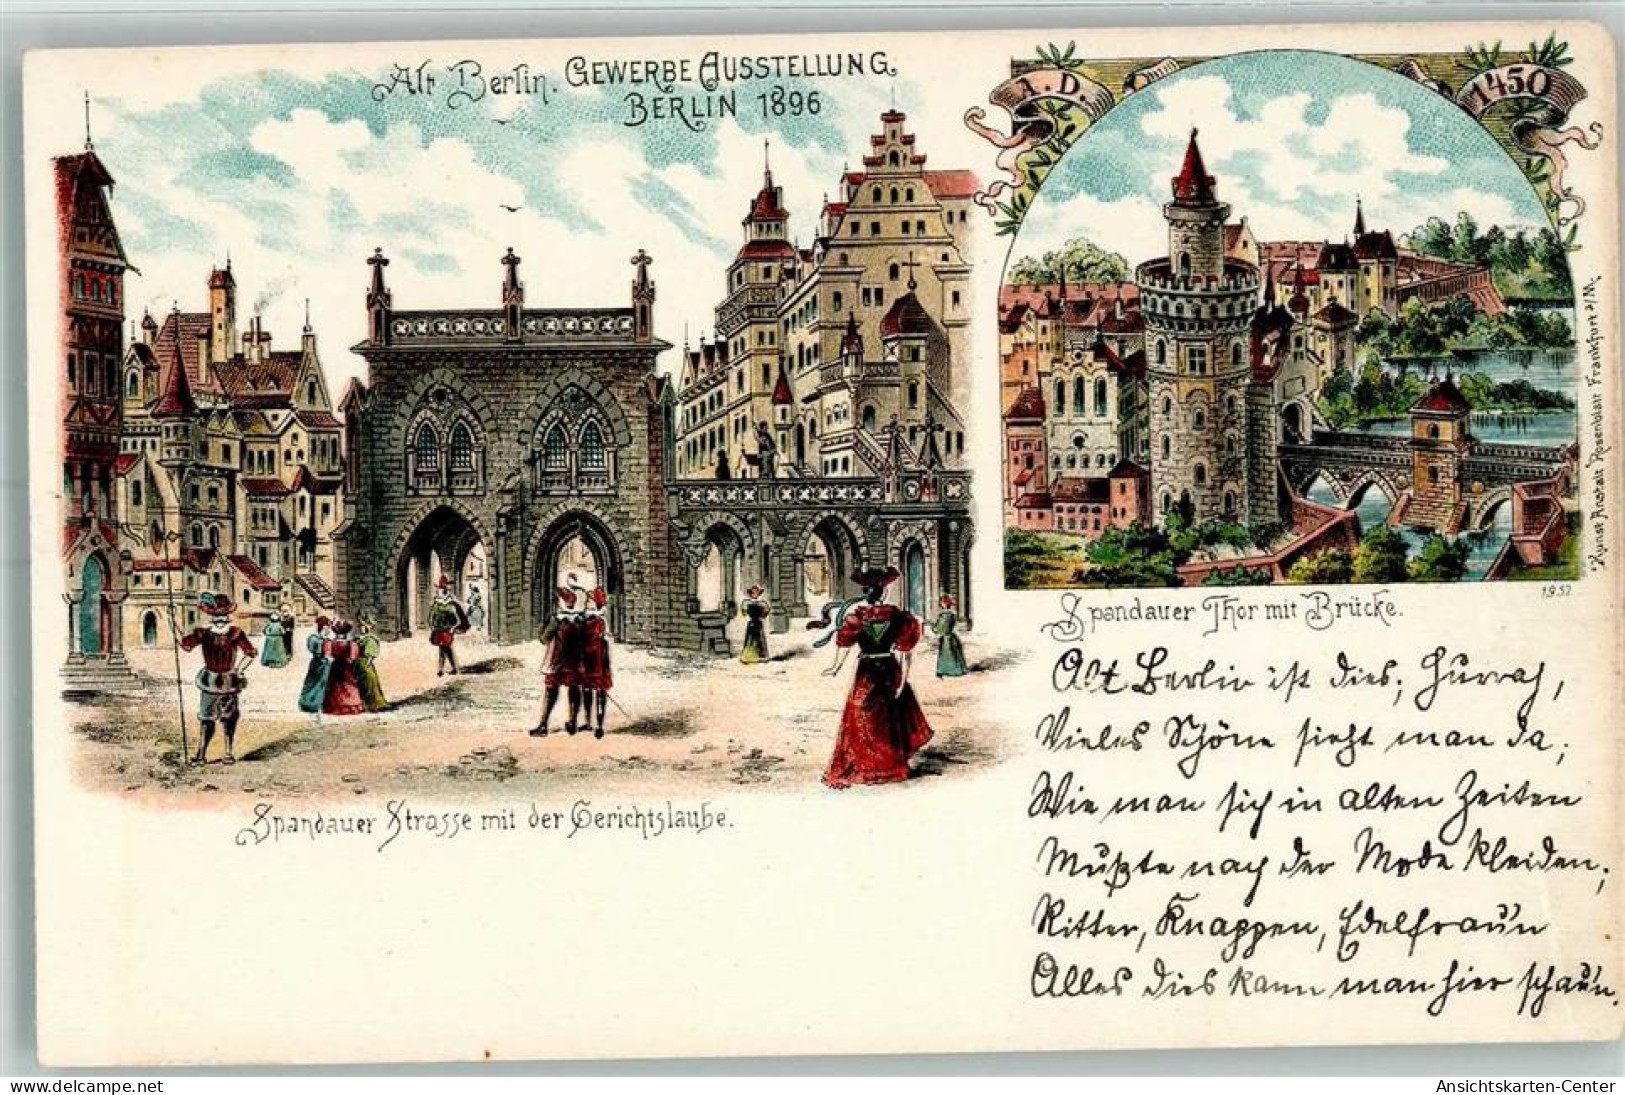 Alt Berlin. GEWERBE AUSSTELLUNG.
BERLIN 1896
A. D. 1450
Kunst Anstalt Rosenblatt Frankfurt a/M.
1952
Spandauer Thor mit Brücke.
Spandauer Strasse mit der Gerichtslaube.
Alt Berlin ist dies, Hurrah,
Vieles Schöne sieht man da,
Wie man sich in alten Zeiten
Mußte nach der Mode kleiden,
Ritter, Knappen, Edelfrau'n
Alles dies kann man hier schau'n.
www.delcampe.net
Ansichtskarten-Center